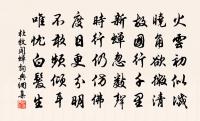 火雲初似滅
曉角欲微清
故國行千里
新蟬忽數聲
時行仍仿佛
度日更分明
不敢頻傾耳
唯忧白髮生
杜牧聞蟬詞典網集